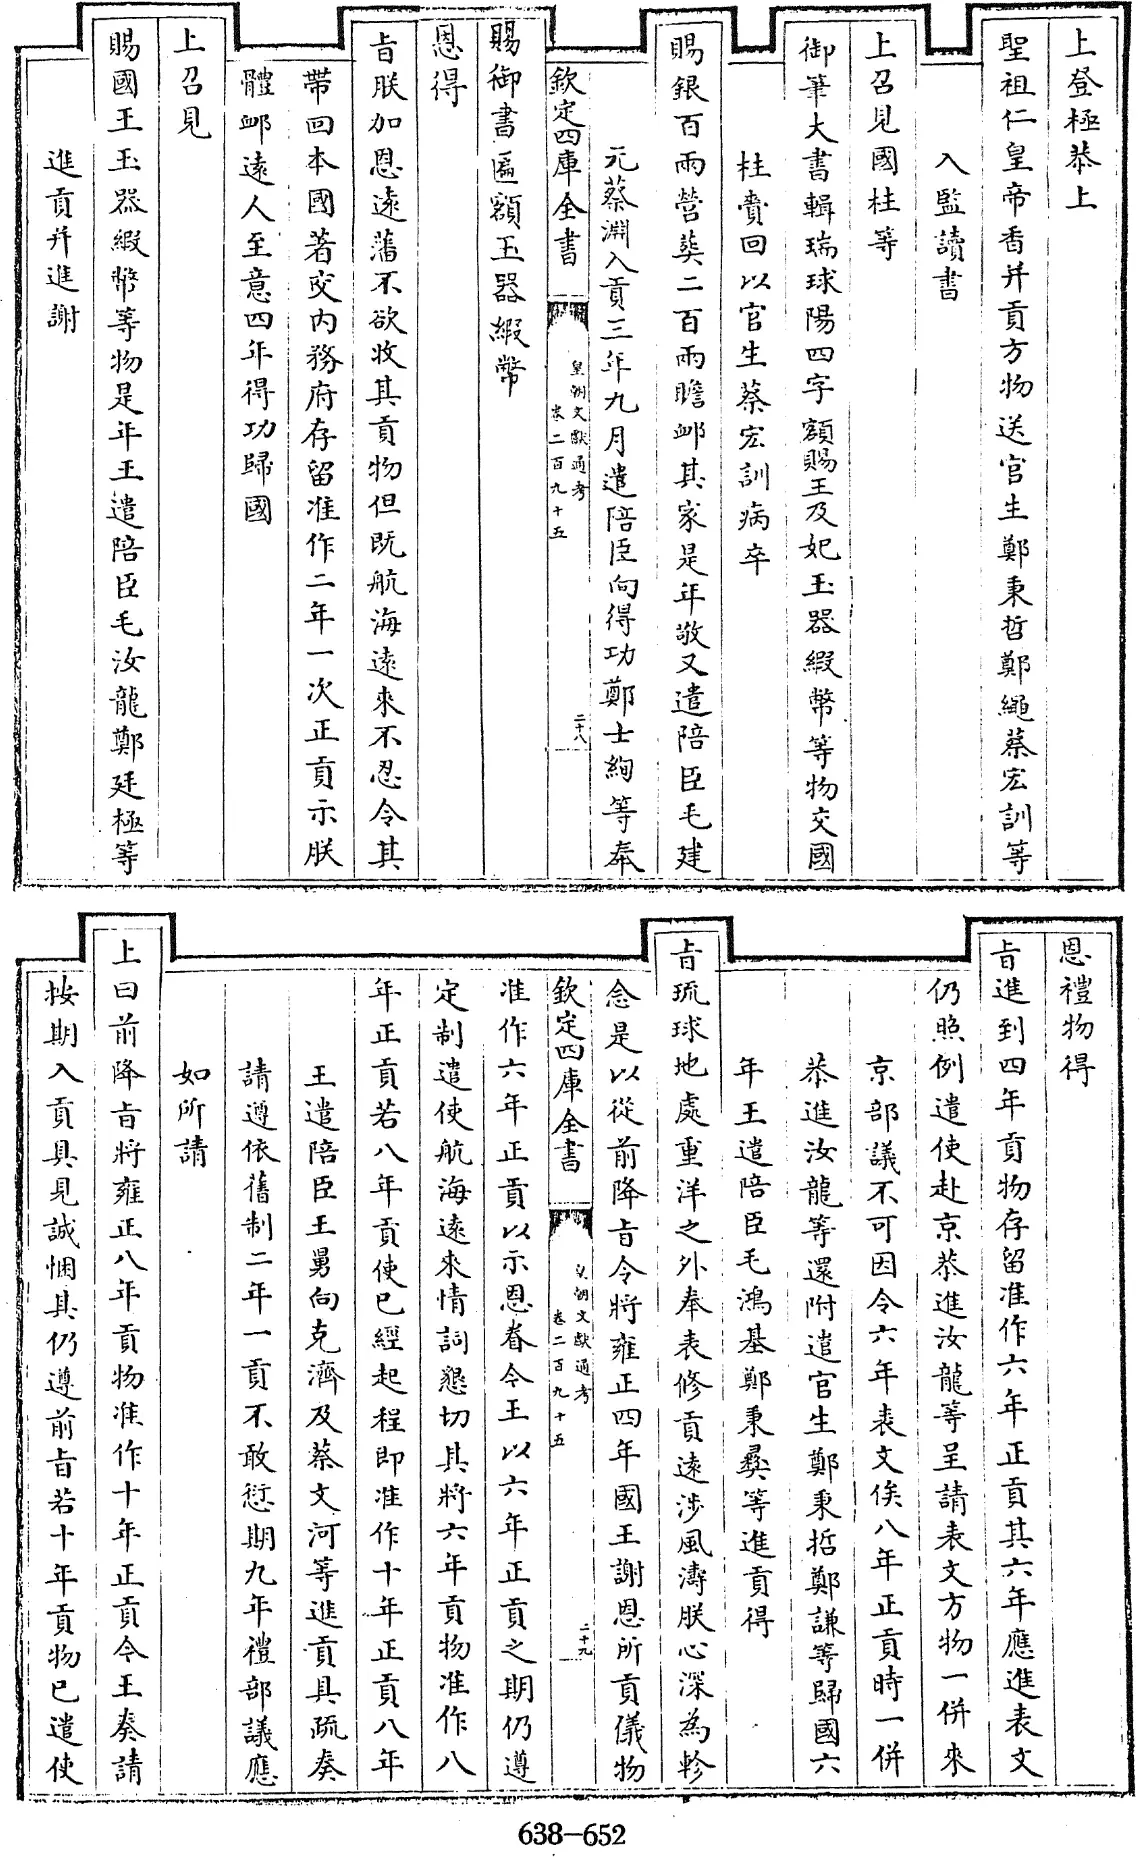 上登極恭上
聖祖仁皇帝香并貢方物送官生鄭秉哲鄭繩蔡宏訓等
入監讀書
上召見國柱等
御筆大書輯瑞球陽四字額賜王及妃玉器緞幣等物交國
柱賫回以官生蔡宏訓病卒
賜銀百兩營葬二百兩贍卹其家是年敬又遣陪臣毛建
元蔡淵入貢三年九月遣陪臣向得功鄭士絢等奉
欽定四庫全書
皇朝文獻通考
卷二百九十五
二十八
賜御書匾額玉器緞幣
恩得
旨朕加恩遠藩不欲收其貢物但既航海遠來不忍令其
帶回本國著交内務府存留准作二年一次正貢示朕
體卹遠人至意四年得功歸國
上召見
賜國王玉器緞幣等物是年王遣陪臣毛汝龍鄭廷極等
進貢并進謝
恩禮物得
旨進到四年貢物存留准作六年正貢其六年應進表文
仍照例遣使赴京恭進汝龍等呈請表文方物一併來
京部議不可因令六年表文俟八年正貢時一併
恭進汝龍等還附遣官生鄭秉哲鄭謙等歸國六
年王遣陪臣毛鴻基鄭秉彝等進貢得
旨琉球地處重洋之外奉表修貢遠涉風濤朕心深為軫
念是以從前降旨令將雍正四年國王謝恩所貢儀物
欽定四庫全書
皇朝文獻通考
卷二百九十五
二十九
准作六年正貢以示恩眷今王以六年正貢之期仍遵
定制遣使航海遠來情詞懇切其將六年貢物准作八
年正貢若八年貢使已經起程即准作十年正貢八年
王遣陪臣王男向克濟及蔡文河等進貢具疏奏
請遵依舊制二年一貢不敢愆期九年禮部議應
如所請
上曰前降旨將雍正八年貢物准作十年正貢今王奏請
按期入貢具見誠悃其仍遵前旨若十年貢物已遣使
638-652